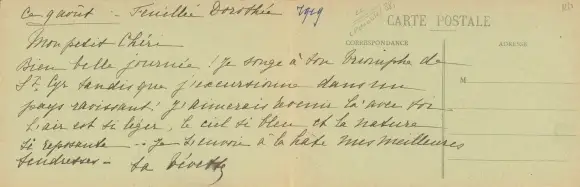 Ce 9 août — Feuillée Dorothée 1919
CARTE POSTALE
CORRESPONDANCE
ADRESSE
M
Mon petit Chéri
Bien belle journée ! Je songe à ton triomphe de
St Cyr tandis que j'excursionne dans un
pays ravissant ! J'aimerais venir là avec toi
L'air est si léger, le ciel si bleu et la nature
si reposante — Je t'envoie à la hâte mes meilleures
tendresses —
ta